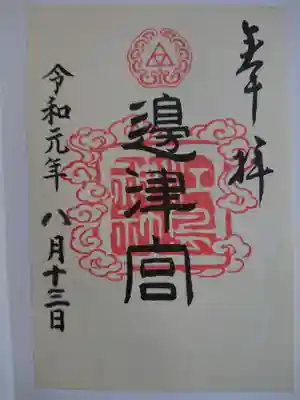 奉拝
邊津宮
令和元年 八月十三日